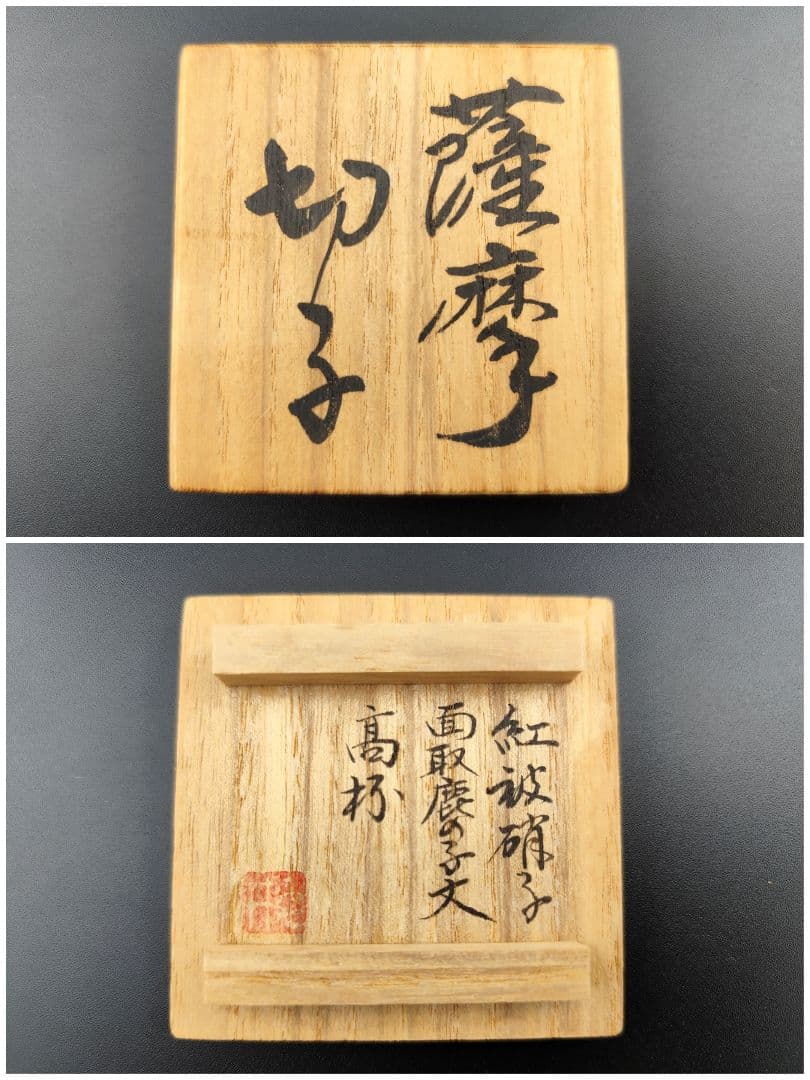 薩摩
切子
紅被硝子
面取鹿の子文
高杯